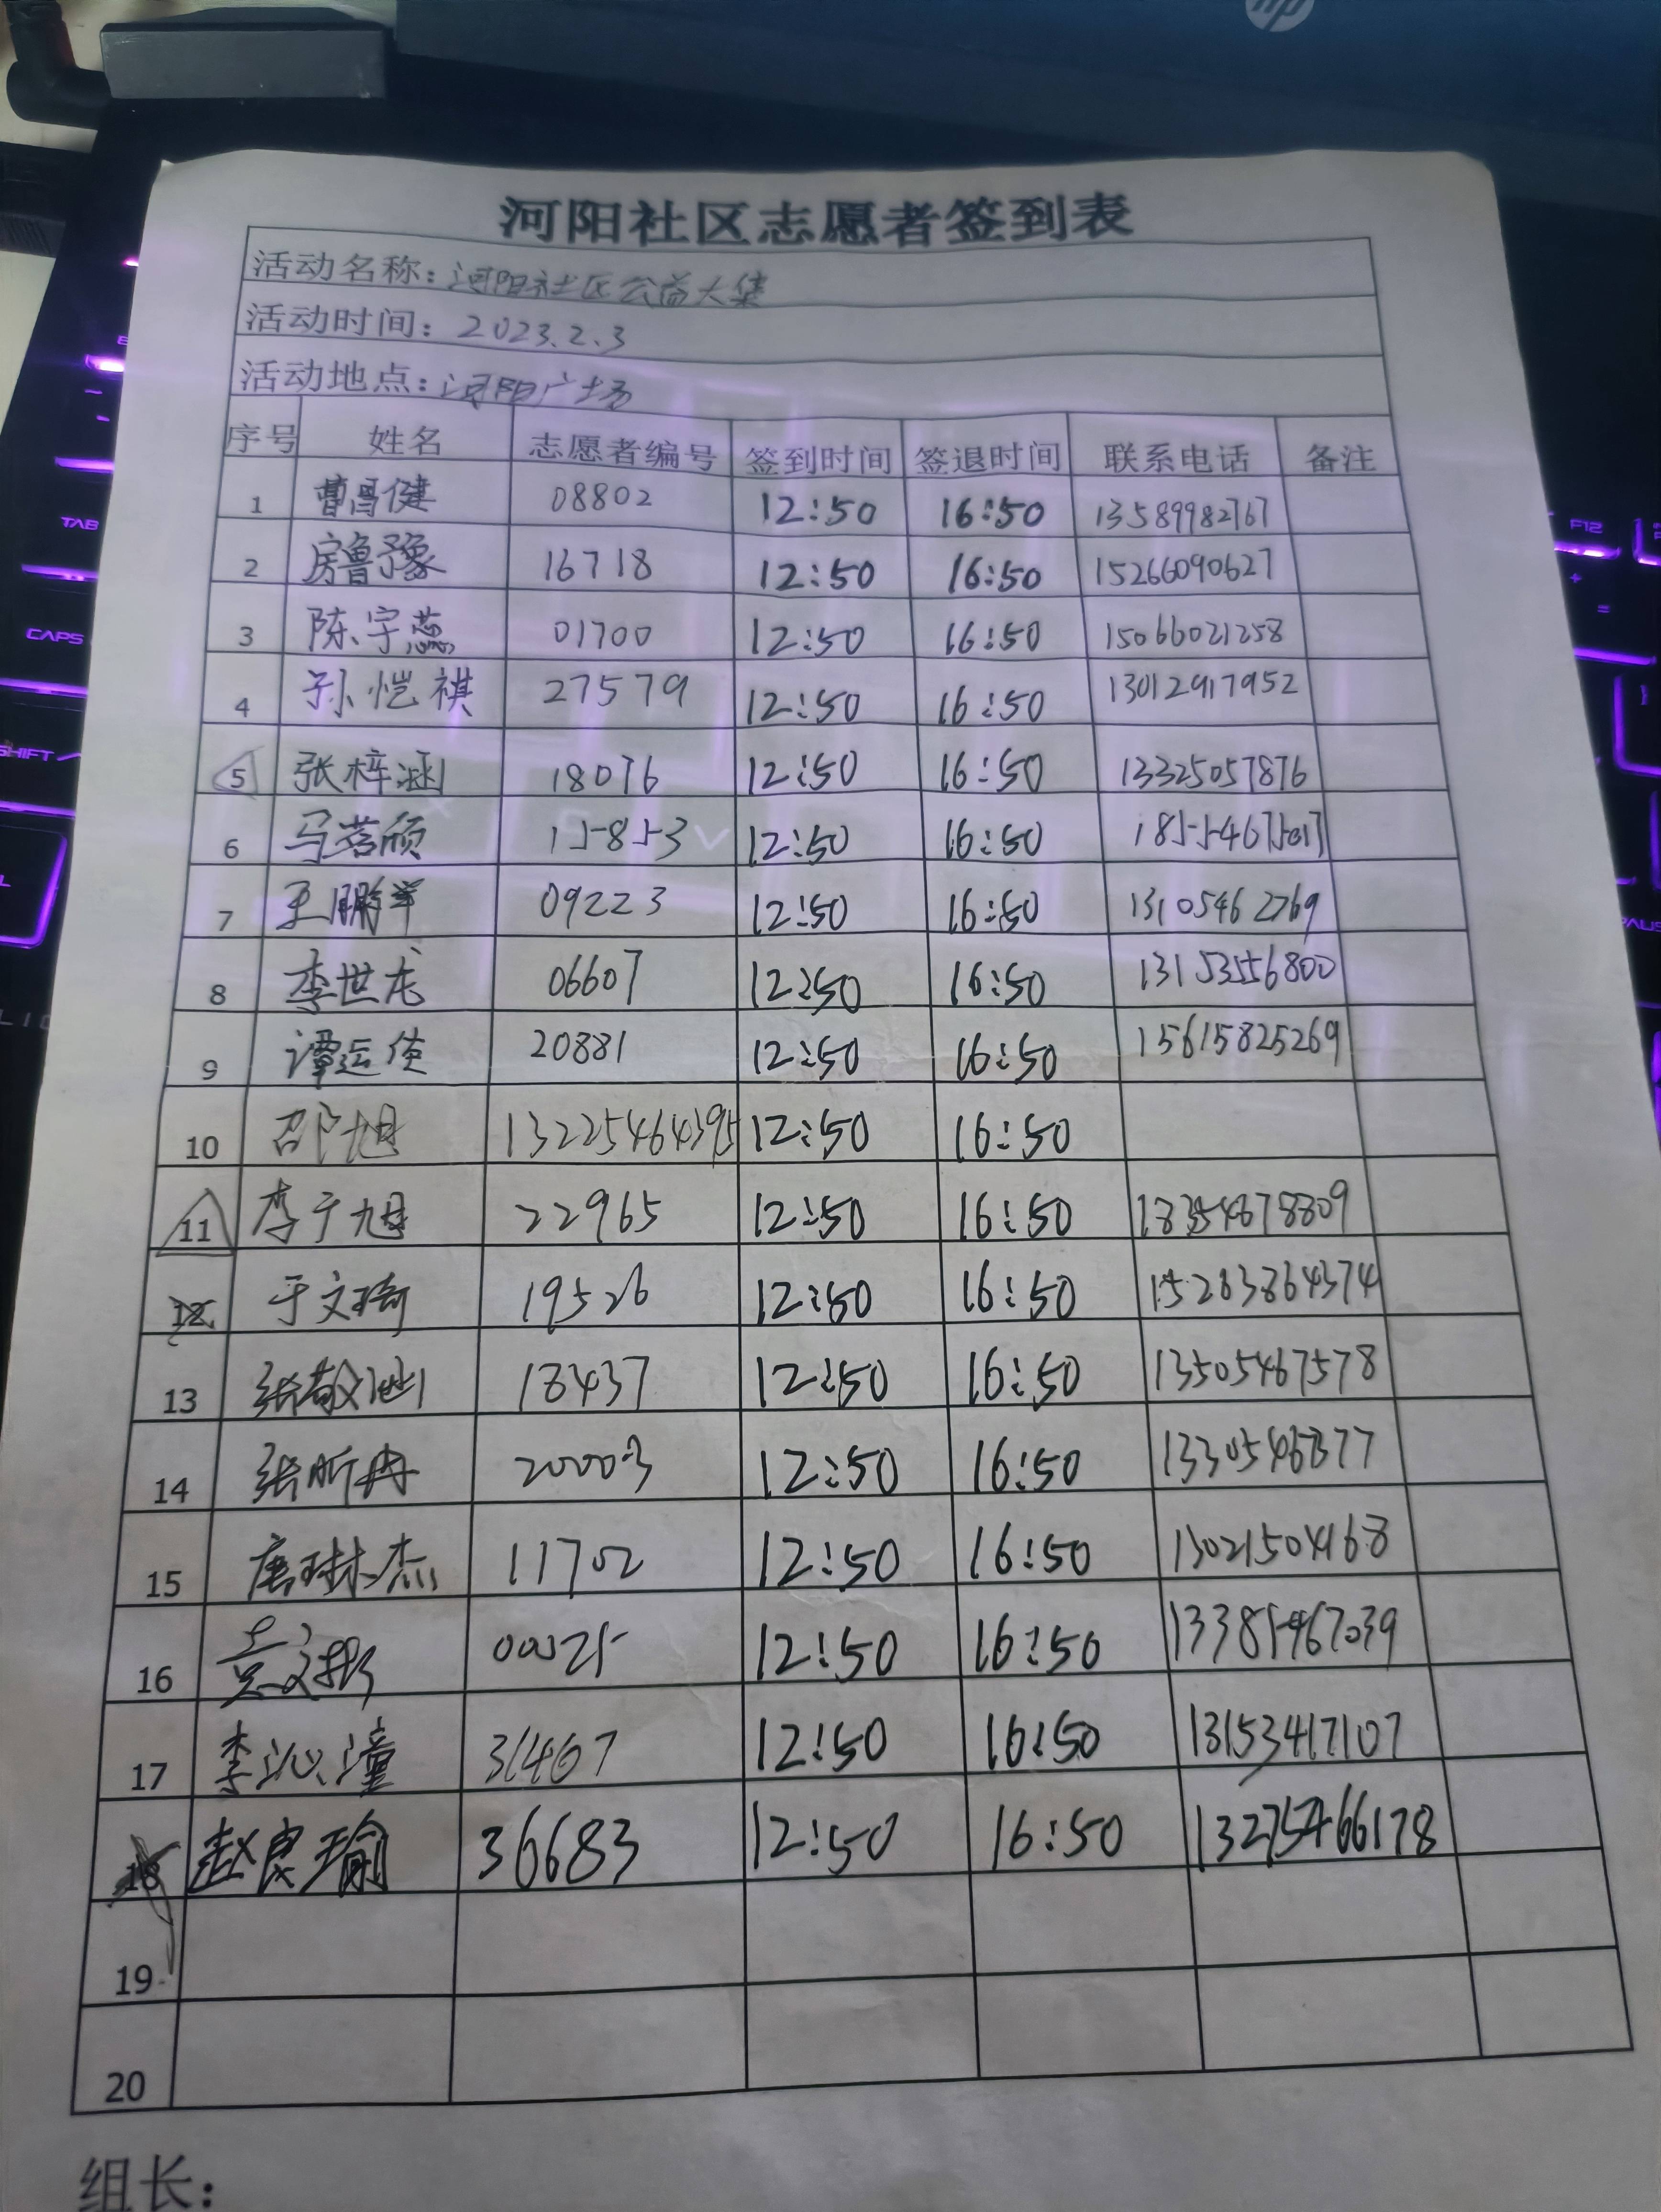 hp
河阳社区志愿者签到表
活动名称：河阳社区公益大集
活动时间：2023.2.3
活动地点：河阳广场
序号 姓名 志愿者编号 签到时间 签退时间 联系电话 备注
1 曹昌健 08802 12:50 16:50 13589982767
2 房鲁豫 16718 12:50 16:50 15266090627
3 陈宇蕊 01700 12:50 16:50 15066021258
4 孙恺祺 27579 12:50 16:50 13012917952
5 张梓涵 18076 12:50 16:50 13325057876
6 马茗硕 15853 12:50 16:50
7 王鹏洋 09223 12:50 16:50 13105462769
8 李世龙 06607 12:50 16:50 13153556800
9 谭运佳 20881 12:50 16:50 15615825269
10 邵旭 13225464395 12:50 16:50
11 李于旭 22965 12:50 16:50 18354678809
12 于文琦 19526 12:50 16:50 15263864374
13 张敬 18437 12:50 16:50 13505467578
14 张昕冉 20003 12:50 16:50
15 唐琳杰 11702 12:50 16:50 13021504168
16 12:50 16:50 13385467039
17 李沁潼 31467 12:50 16:50 13153417107
18 赵良瑜 36683 12:50 16:50 13275466178
19
20
组长：
TAB
CAPS
SHIFT
F12